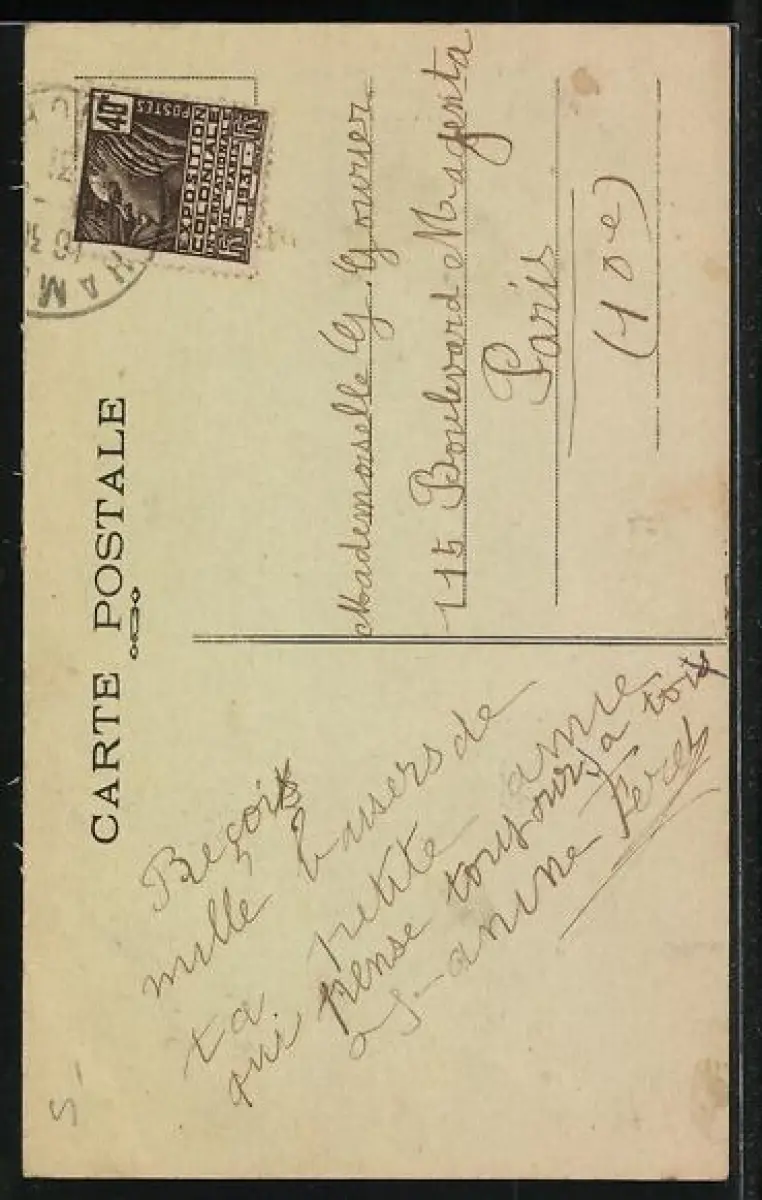 CARTE POSTALE
40c
POSTES
EXPOSITION
COLONIALE
INTERNATIONALE
DE PARIS
1931
Reçois
mille baisers de
ta petite amie
qui pense toujours a toi
Janine Feret
Mademoiselle G. Gourier
115 Boulevard Magenta
Paris
(10e)